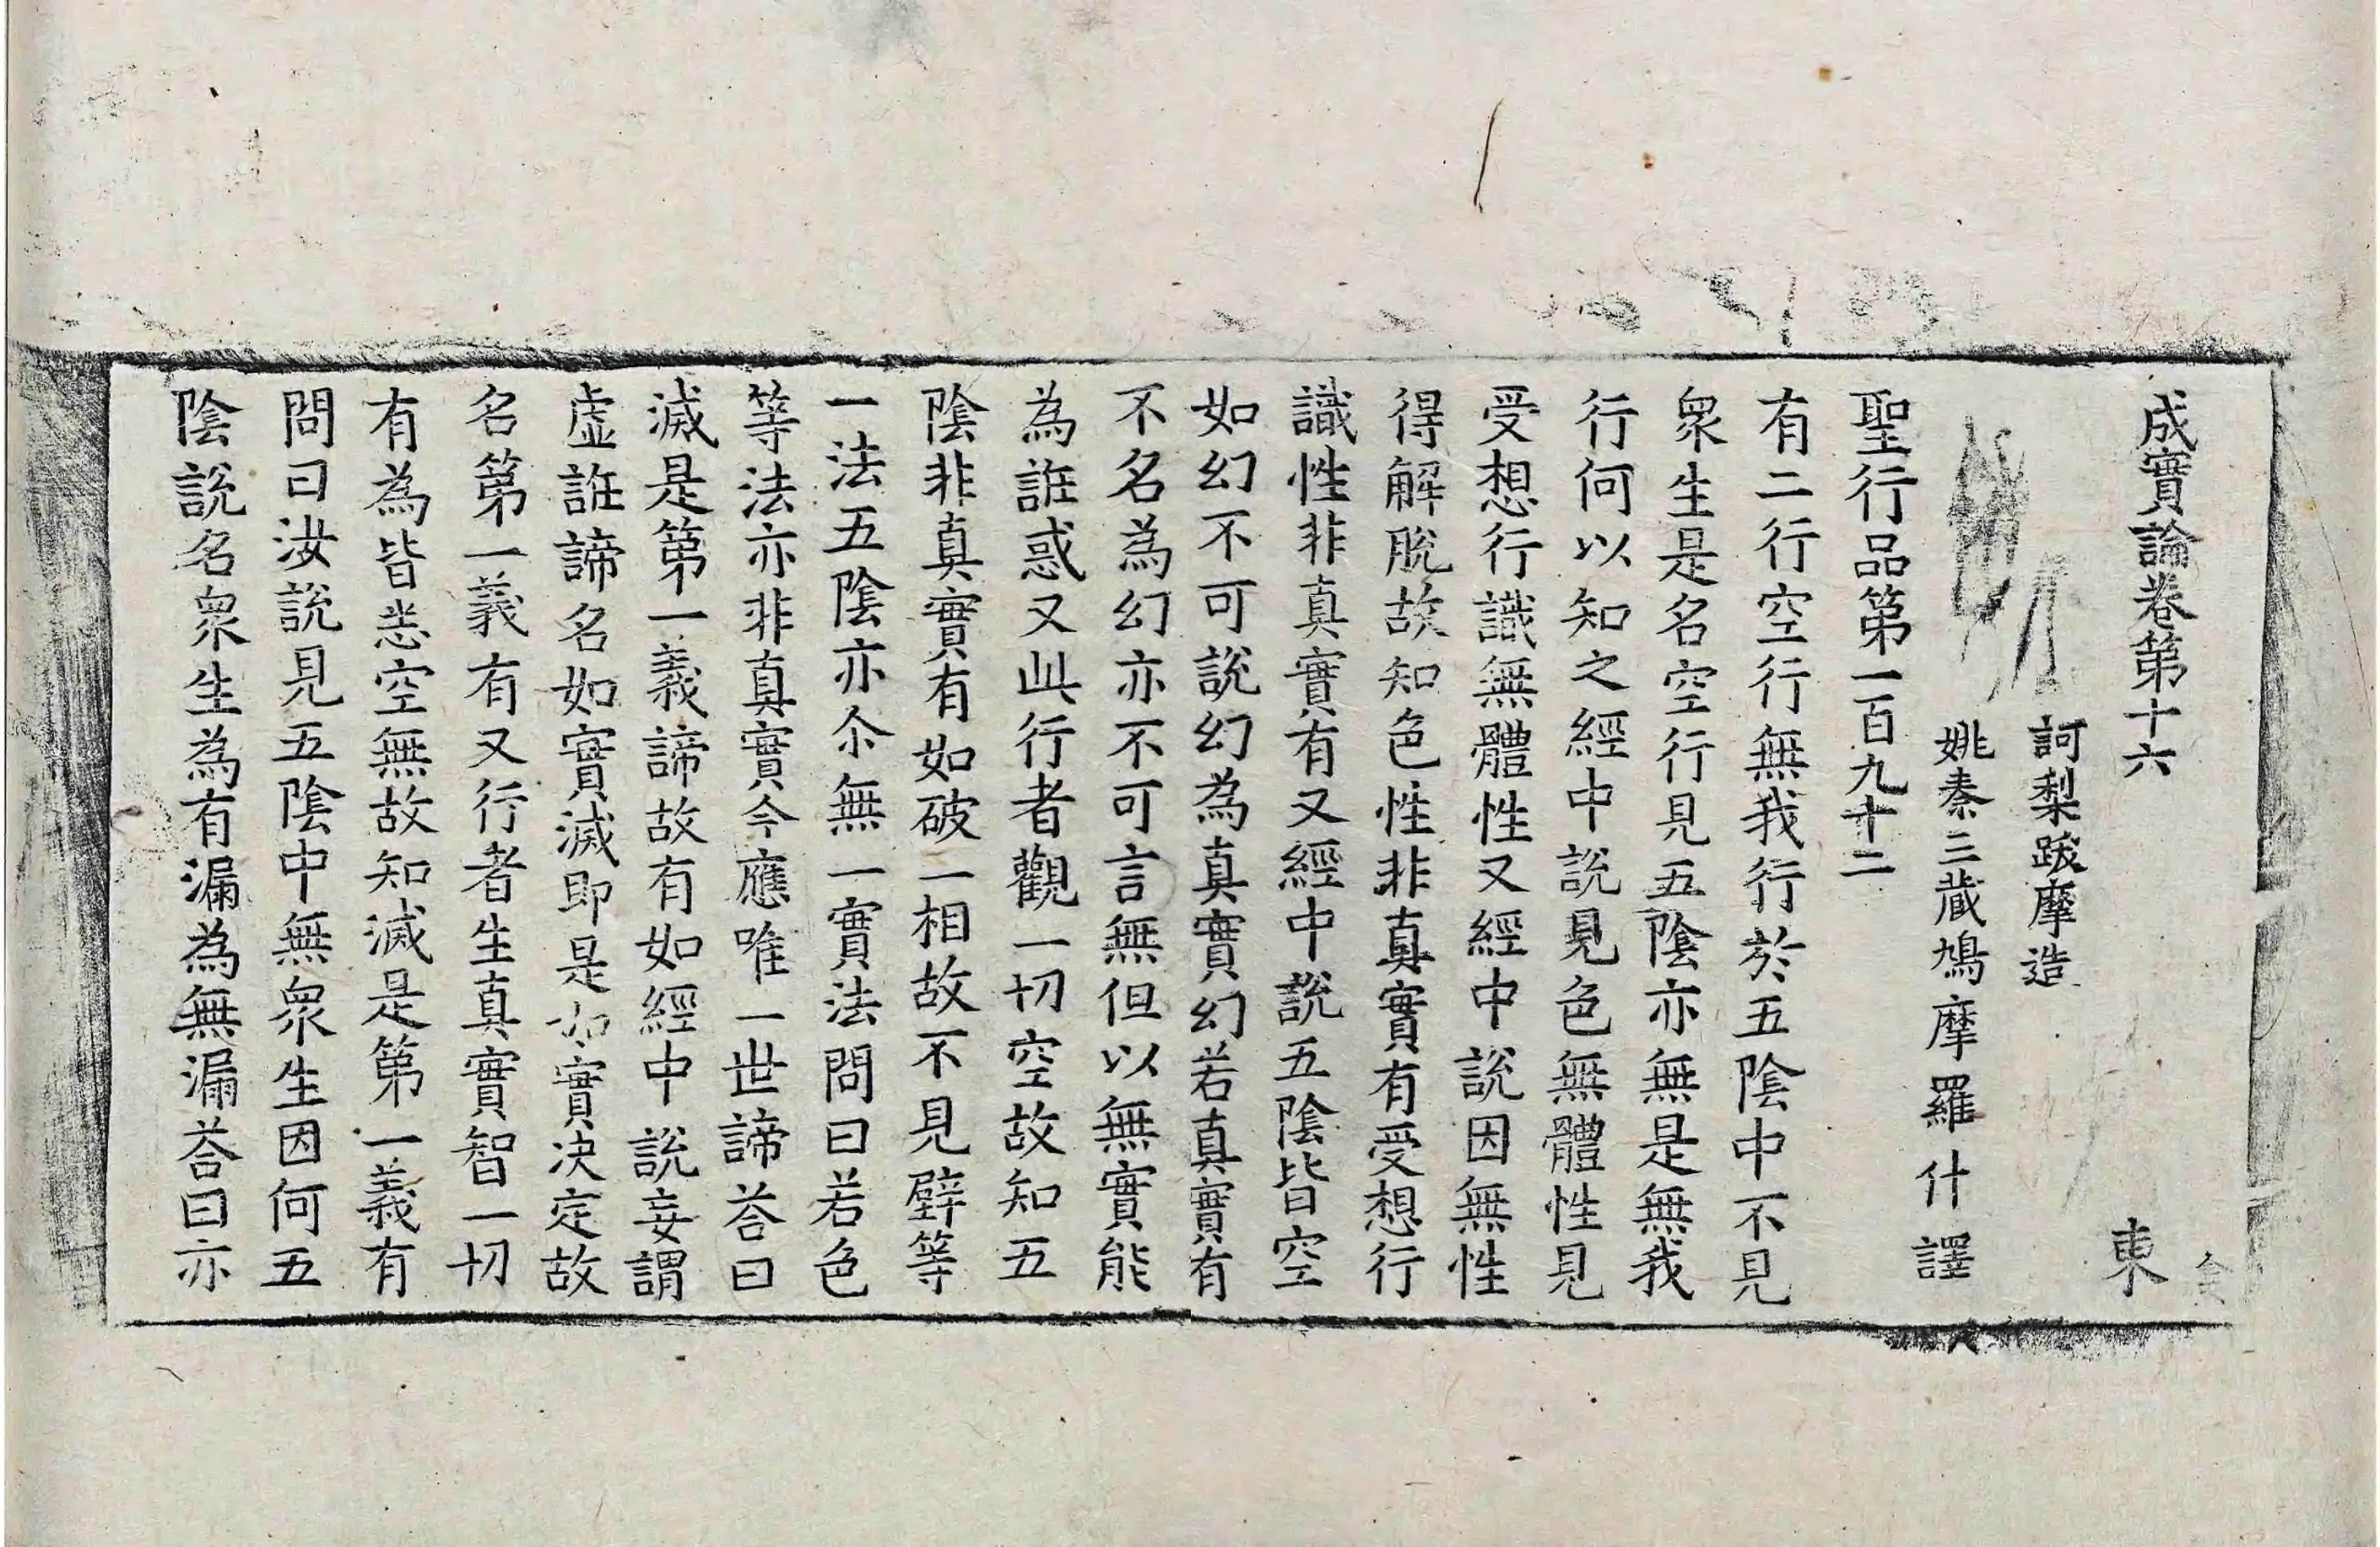 成實論卷第十六 東
訶梨跋摩造
姚秦三藏鳩摩羅什譯
聖行品第一百九十二
有二行空行無我行於五陰中不見
衆生是名空行見五陰亦無是無我
行何以知之經中說見色無體性見
受想行識無體性又經中說因無性
得解脫故知色性非真實有受想行
識性非真實有又經中說五陰皆空
如幻不可說幻為真實幻若真實有
不名為幻亦不可言無但以無實能
為誑惑又此行者觀一切空故知五
陰非真實有如破一相故不見壁等
一法五陰亦尒無一實法問曰若色
等法亦非真實今應唯一世諦荅曰
滅是第一義諦故有如經中說妄謂
虛誑諦名如實滅即是如實決定故
名第一義有又行者生真實智一切
有為皆悉空無故知滅是第一義有
問曰汝說見五陰中無衆生因何五
陰說名衆生為有漏為無漏荅曰亦